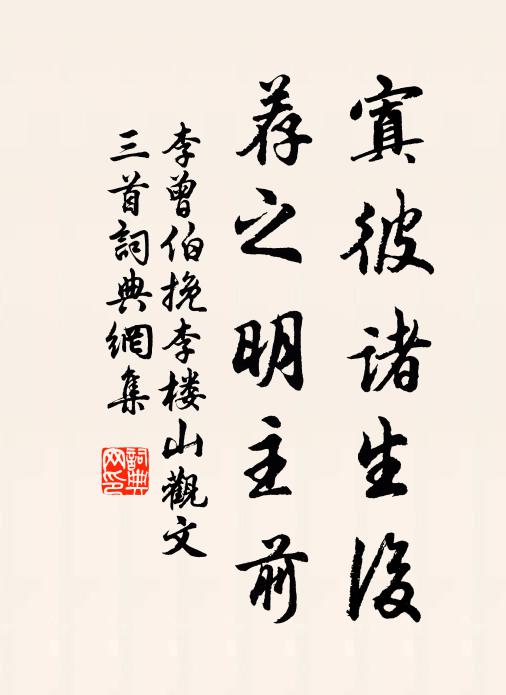 寘彼诸生後
荐之明主前
李曾伯挽李楼山觀文
三首詞典網集
詞典網印